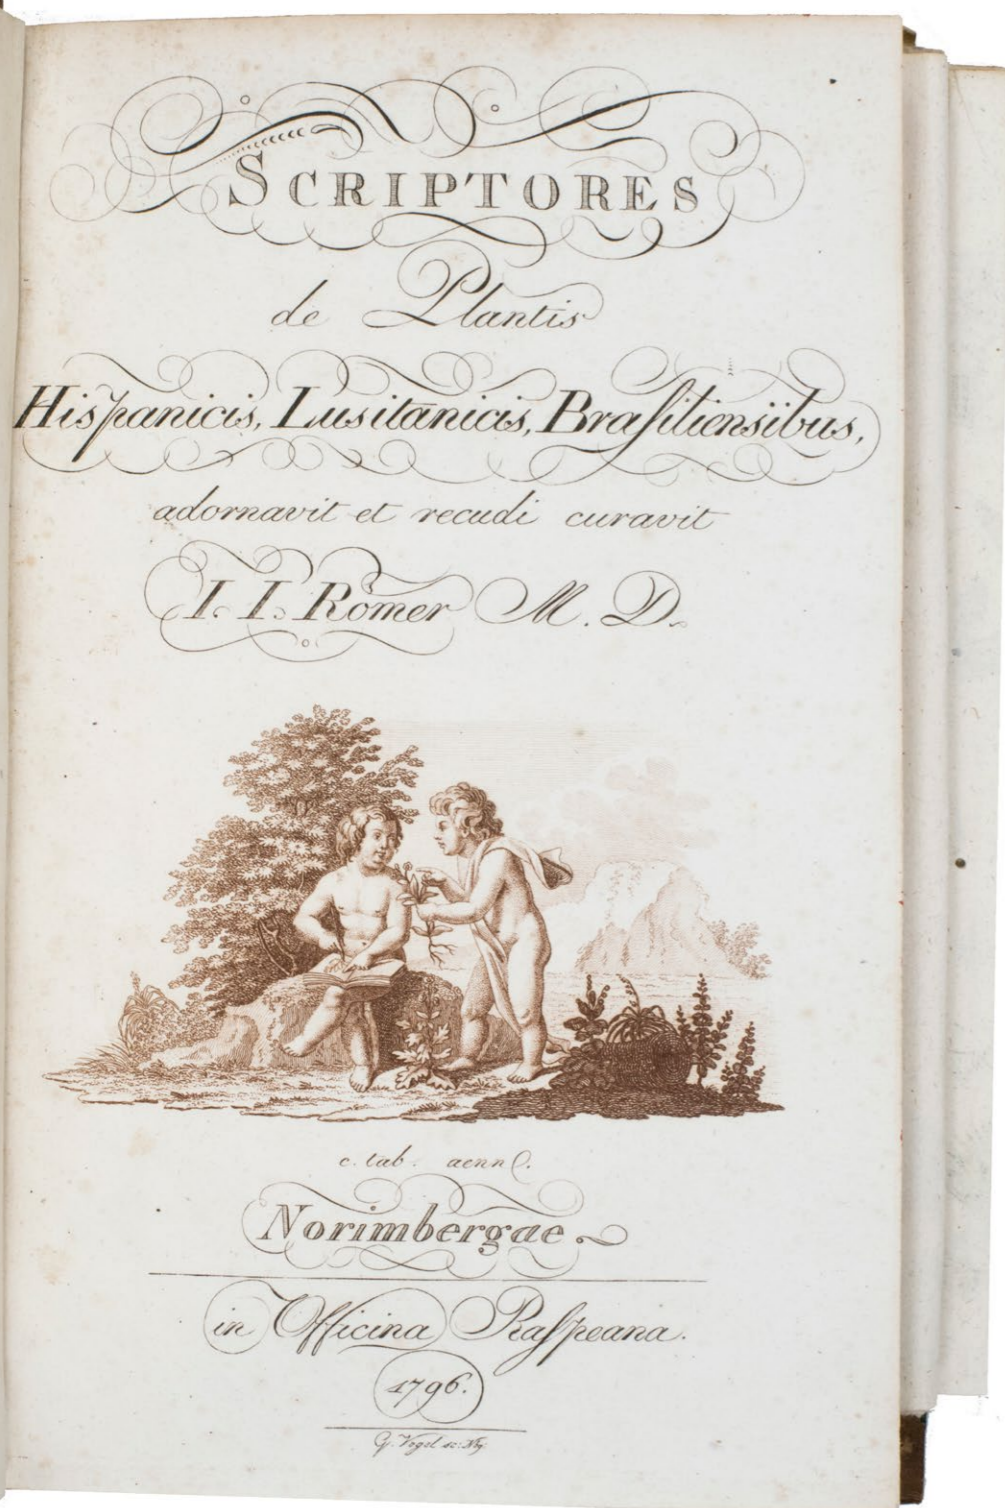 SCRIPTORES
de Plantis
Hispanicis, Lusitanicis, Braſiliensibus,
adornavit et recudi curavit
I. I. Römer M. D.
c. tab. aenn
Norimbergae.
in Officina Raſpeana.
1796.
G. Vogel sc. Nbg.